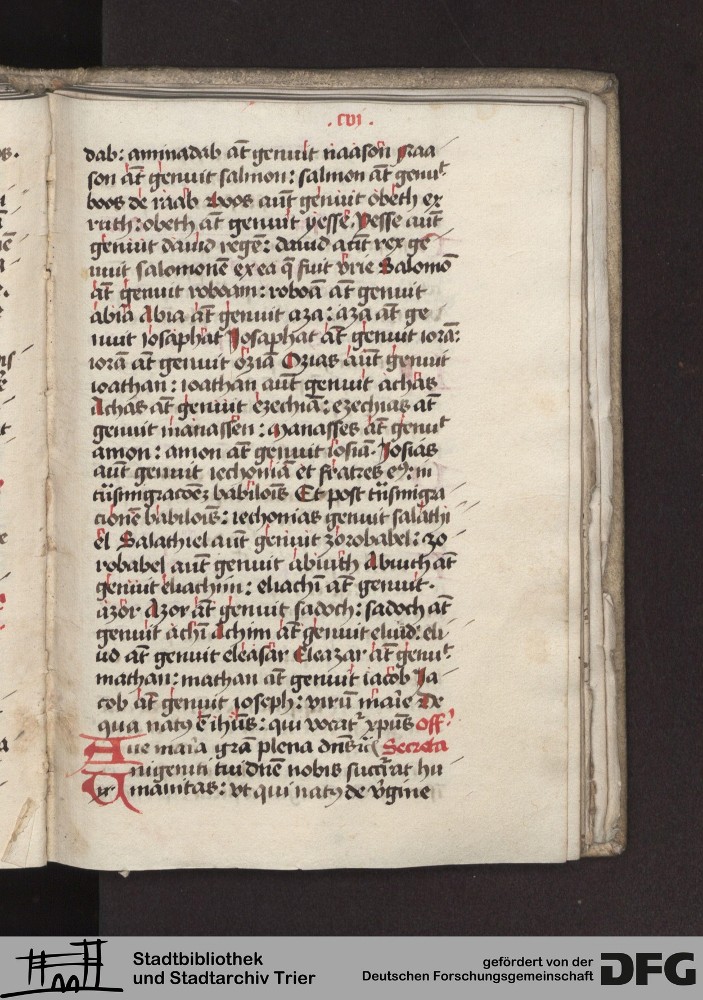 . cvi .
dab: aminadab at̄ genuit naason Naa
son at̄ genuit salmon: salmon at̄ genuit
boos de raab Boos aut̄ genuit obeth ex
ruth: obeth at̄ genuit yesse. Yesse aut̄
genuit dauid regē: dauid aut̄ rex ge
nuit salomonē ex ea q̄ fuit vrie Salomō
at̄ genuit roboam: roboā at̄ genuit
abia Abia at̄ genuit aza: aza at̄ ge
nuit iosaphat Josaphat at̄ genuit iorā:
iorā at̄ genuit oziā Ozias aut̄ genuit
ioathan: ioathan aut̄ genuit achas
Achas at̄ genuit ezechiā: ezechias at̄
genuit manassen: Manasses at̄ genuit
amon: amon at̄ genuit iosiā. Josias
aut̄ genuit iechoniā et fratres eꝰ: in
trāsmigracōeꝫ babilois̄ Et post trāsmigra
cionē babilois̄: iechonias genuit salathi
el Salathiel aut̄ genuit zorobabel: zo
robabel aut̄ genuit abiuth Abiuth at̄
genuit eliachim: eliachī at̄ genuit.
azor Azor at̄ genuit sadoch: sadoch at̄
genuit achī Achim at̄ genuit eliud: eli
ud at̄ genuit eleasar Eleazar at̄ genuit
mathan: mathan at̄ genuit iacob Ja
cob at̄ genuit ioseph: virū marie De
qua natꝰ ē ihūs: qui vocat̄ xp̄us Off
Aue maria grā plena dn̄s Secreta
Vnigeniti tui dn̄e nobis succrat̄ hu
manitas: vt qui natꝰ de v̄gine
Stadtbibliothek
und Stadtarchiv Trier
gefördert von der
Deutschen Forschungsgemeinschaft
DFG